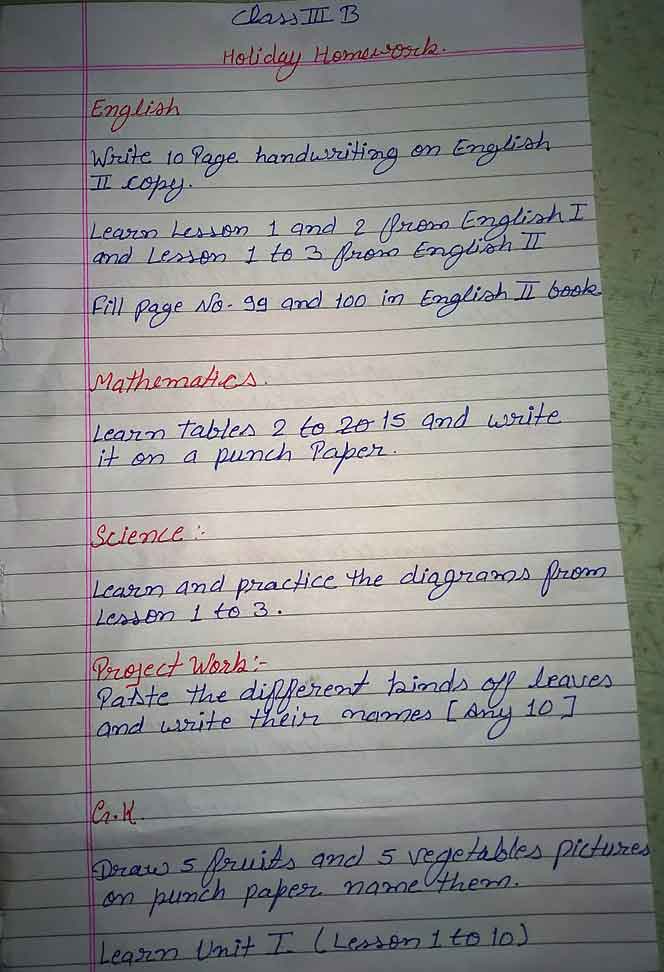 Class III B
Holiday Homework.
English
Write 10 Page handwriting on English
II copy.
Learn Lesson 1 and 2 from English I
and Lesson 1 to 3 from English II
Fill page No- 99 and 100 in English II book
Mathematics.
Learn tables 2 to 20 15 and write
it on a punch Paper.
Science :-
Learn and practice the diagrams from
Lesson 1 to 3.
Project Work:-
Patste the different kinds off leaves
and write their names [Any 10]
G.K.
Draw 5 fruits and 5 vegetables pictures
on punch paper name them.
Learn Unit I (Lesson 1 to 10)